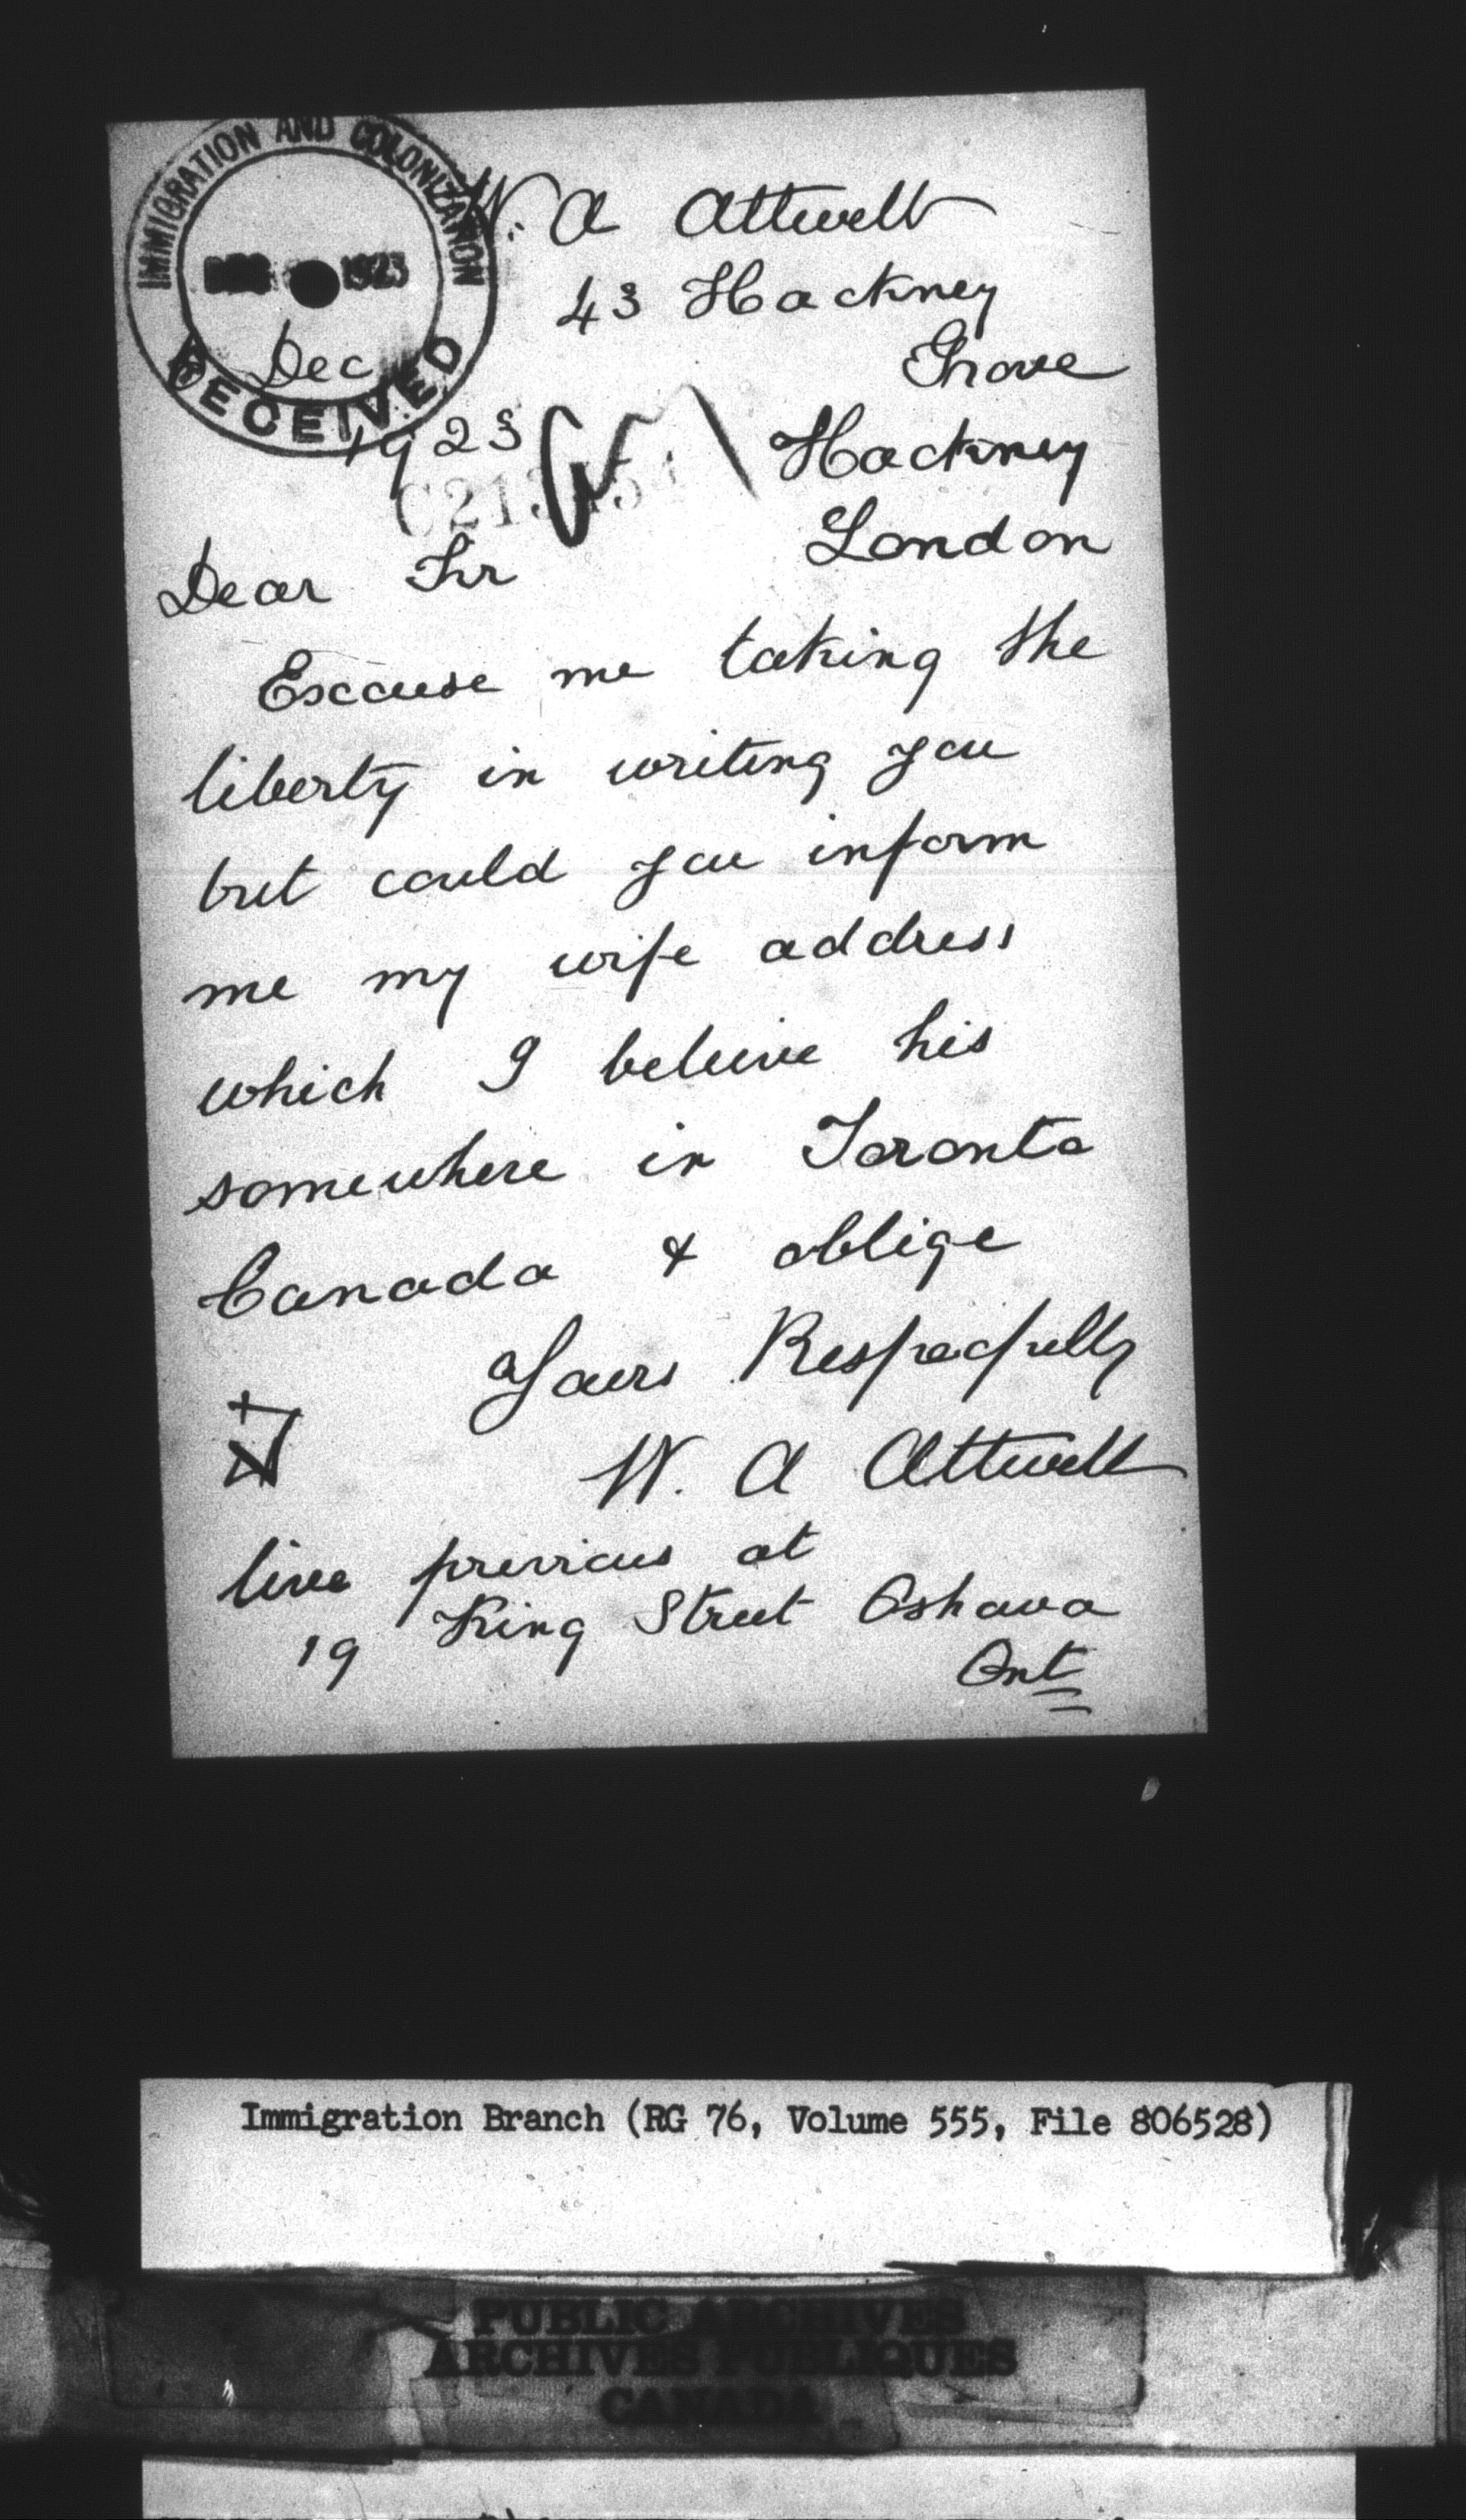 IMMIGRATION AND COLONIZATION
1923
RECEIVED
W. A Attwell
43 Hackney
Grove
Dec
1923
Hackney
London
Dear Sir
Exccuse me taking the
liberty in writing you
but could you inform
me my wife address
which I beleive his
somewhere in Toronto
Canada & oblige
Yours Respecfully
W. A Attwell
live previous at
19 King Street Oshawa
Ont
Immigration Branch (RG 76, Volume 555, File 806528)
PUBLIC ARCHIVES
ARCHIVES PUBLIQUES
CANADA